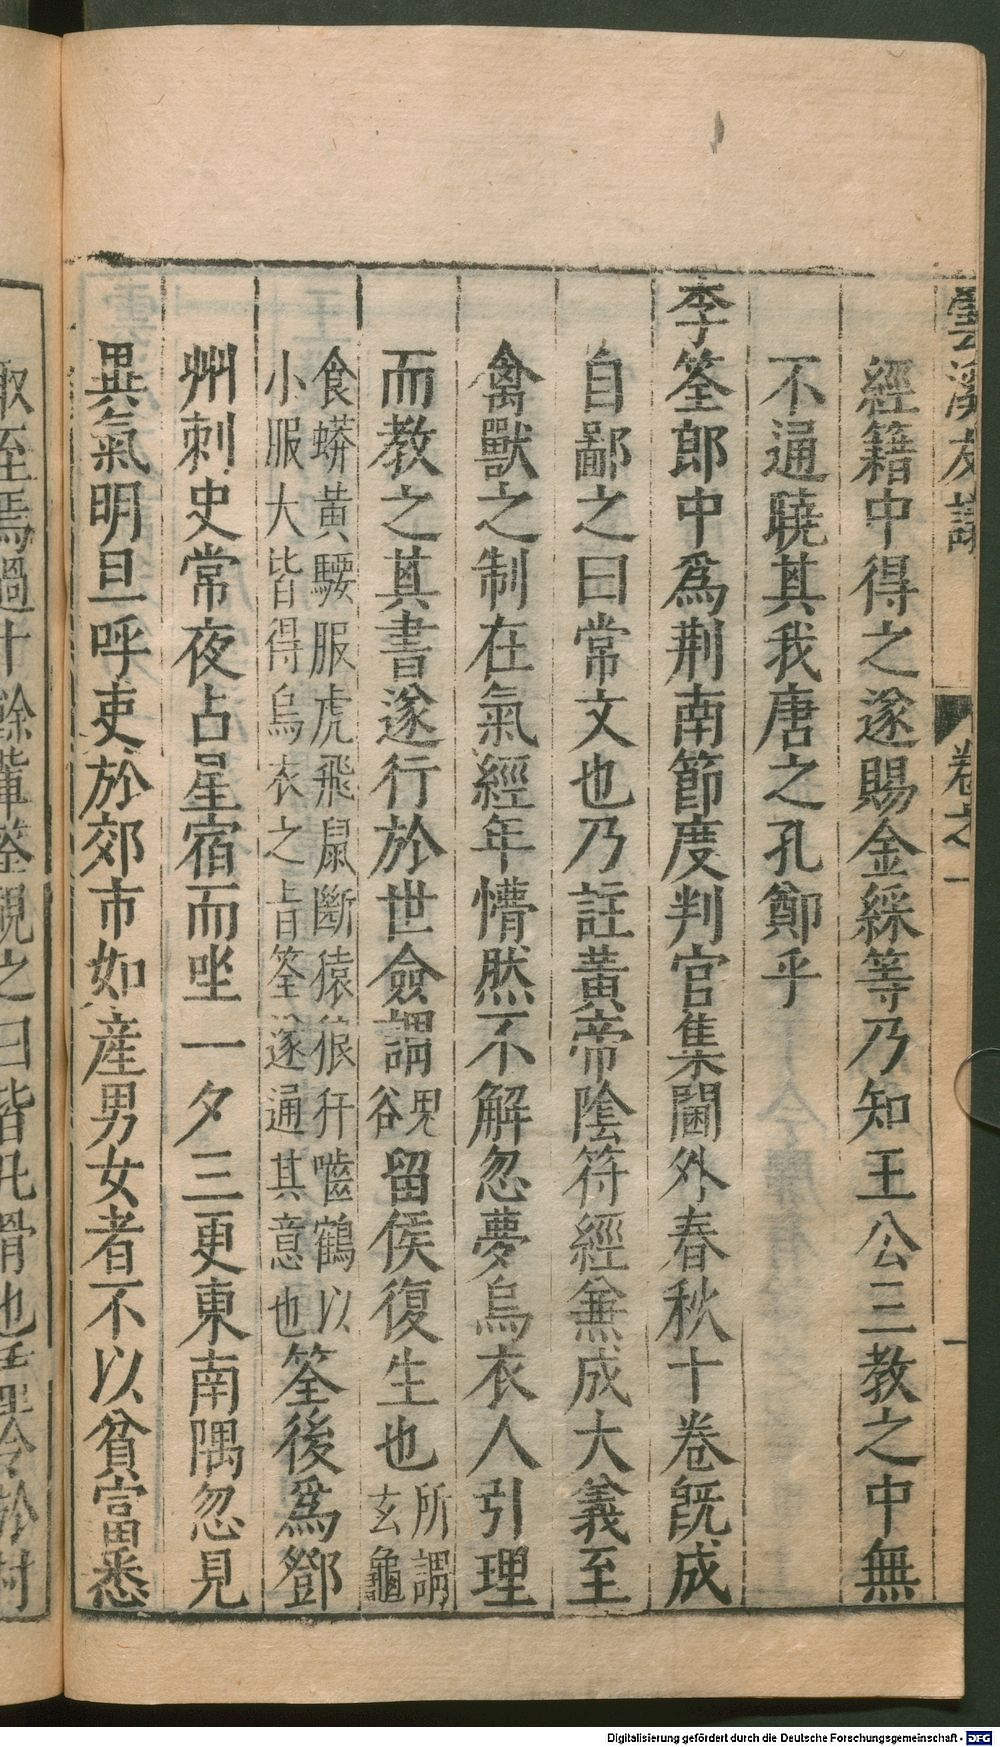 雲溪友議 卷之一 一
經籍中得之遂賜金綵等乃知王公三教之中無
不通曉其我唐之孔鄭乎
李筌郎中爲荆南節度判官集閫外春秋十卷旣成
自鄙之曰常文也乃註黃帝陰符經兼成大義至
禽獸之制在氣經年懵然不解忽夢烏衣人引理
而教之其書遂行於世僉謂鬼谷留侯復生也所謂玄龜
食蟒黃腰服虎飛鼠斷猿狼犴嚙鶴以
小服大皆得烏衣之旨筌遂通其意也筌後爲鄧
州刺史常夜占星宿而坐一夕三更東南隅忽見
異氣明旦呼吏於郊市如產男女者不以貧富悉
取至焉過十餘輩筌視之曰皆凡骨也 於村
Digitalisierung gefördert durch die Deutsche Forschungsgemeinschaft - DFG